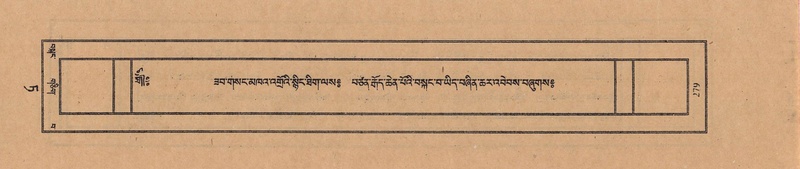 གཅིག
5
ཟབ་གསང་མཁའ་འགྲོའི་སྙིང་ཐིག་ལས༔ བཙན་རྒོད་ཆེན་པོའི་བསྐང་བ་ཡིད་བཞིན་ཆར་འབེབས་བཞུགས༔
279